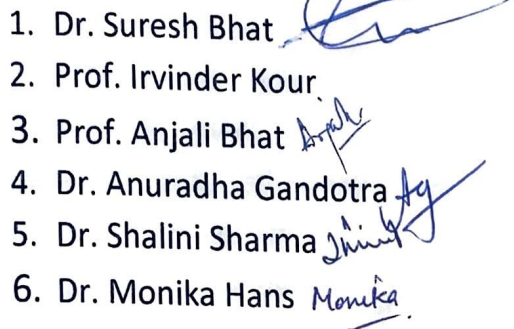 1. Dr. Suresh Bhat
2. Prof. Irvinder Kour
3. Prof. Anjali Bhat Anjali
4. Dr. Anuradha Gandotra Ag
5. Dr. Shalini Sharma
6. Dr. Monika Hans Monika